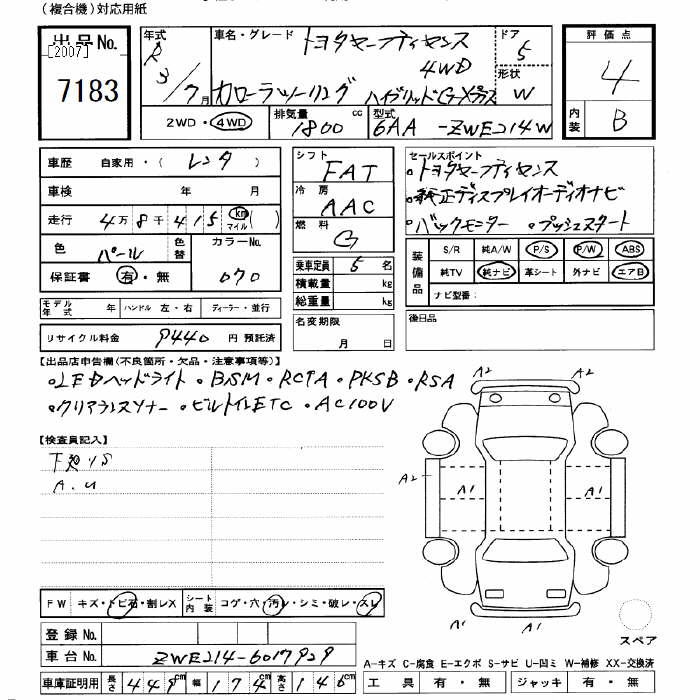 (複合機)対応用紙
出品No.
[2007]
7183
年式 R3/7月
車名・グレード トヨタセーフティセンス 4WD
カローラツーリング ハイブリッドG-Xプラス
ドア 5
形状 W
2WD・4WD
排気量 1800 cc
型式 6AA-ZWE214W
評価点
4
内装 B
車歴 自家用・(レンタ)
車検 年 月
走行 4万8千415 km マイル ( )
色 パール 色替 カラーNo. 070
保証書 有・無
モデル年式 年 ハンドル 左・右 ディーラー・並行
リサイクル料金 9440 円 預託済
シフト FAT
冷房 AAC
燃料 G
乗車定員 5 名
積載量 kg
総重量 kg
名変期限 月 日
セールスポイント
・トヨタセーフティセンス
・純正ディスプレイオーディオナビ
・バックモニター ・プッシュスタート
装備品 S/R 純A/W P/S P/W ABS
純TV 純ナビ 革シート 外ナビ エアB
ナビ型番:
後日品
【出品店申告欄(不良箇所・欠品・注意事項等)】
・LEDヘッドライト ・BSM ・RCTA ・PKSB ・RSA
・クリアランスソナー ・ビルトインETC ・AC100V
【検査員記入】
下廻りS
A.U
A2 A2
A2 A1 A1
A2 A2
FW キズ・トビ石・割レX シート内装 コゲ・穴・汚レ・シミ・破レ・スレ
スペア
登録No.
車台No. ZWE214-6017929
A-キズ C-腐食 E-エクボ S-サビ U-凹ミ W-補修 XX-交換済
車庫証明用 長さ 449cm 幅 174cm 高さ 146cm
工具 有・無 ジャッキ 有・無